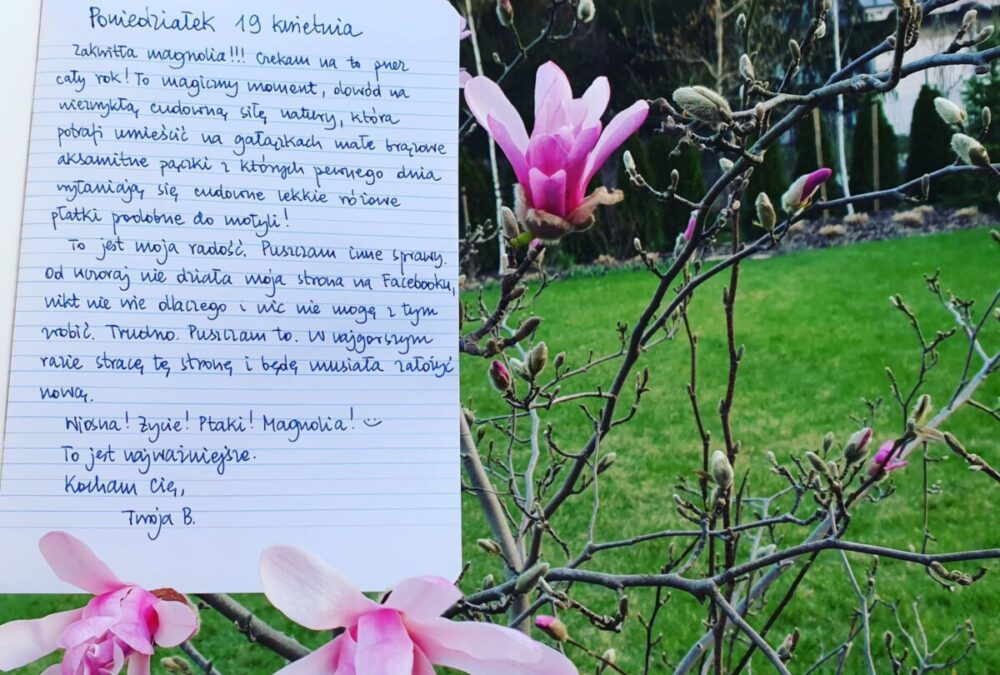 Poniedziałek 19 kwietnia
Zakwitła magnolia!!! Czekam na to przez
cały rok! To magiczny moment, dowód na
niezwykłą, cudowną siłę natury, która
potrafi umieścić na gałązkach małe brązowe
aksamitne pączki z których pewnego dnia
wyłaniają się cudowne lekkie różowe
płatki podobne do motyli!
To jest moja radość. Puszczam inne sprawy.
Od wczoraj nie działa moja strona na Facebooku,
nikt nie wie dlaczego i nic nie mogę z tym
zrobić. Trudno. Puszczam to. W najgorszym
razie stracę tę stronę i będę musiała założyć
nową.
Wiosna! Życie! Ptaki! Magnolia! :)
To jest najważniejsze.
Kocham Cię,
Twoja B.